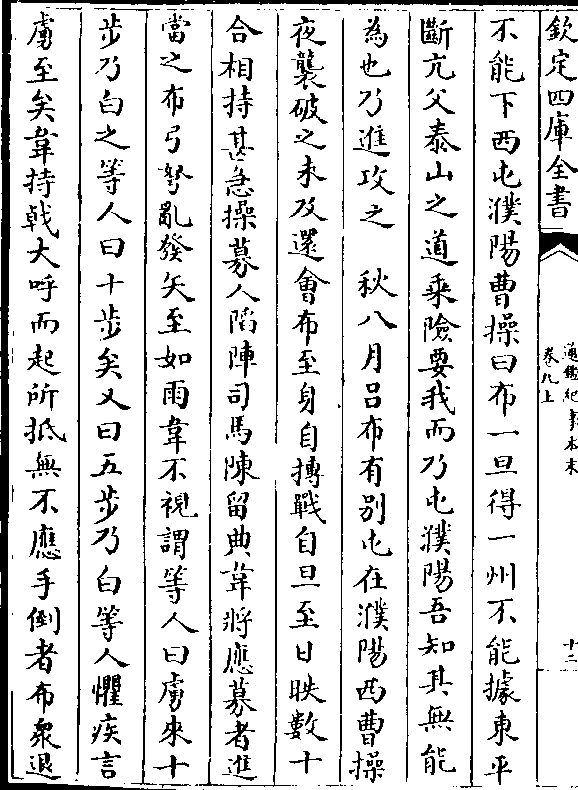 欽定四庫全書
通鑑紀事本末
卷九上
十二
不能下西屯濮陽曹操曰布一旦得一州不能據東平
斷亢父泰山之道乘險要我而乃屯濮陽吾知其無能
為也乃進攻之 秋八月吕布有別屯在濮陽西曹操
夜襲破之未及還會布至身自搏戰自旦至日昳數十
合相持甚急操募人陷陣司馬陳留典韋將應募者進
當之布弓弩亂發矢至如雨韋不視謂等人曰虜來十
步乃白之等人曰十步矣又曰五步乃白等人懼疾言
虜至矣韋持戟大呼而起所抵無不應手倒者布衆退